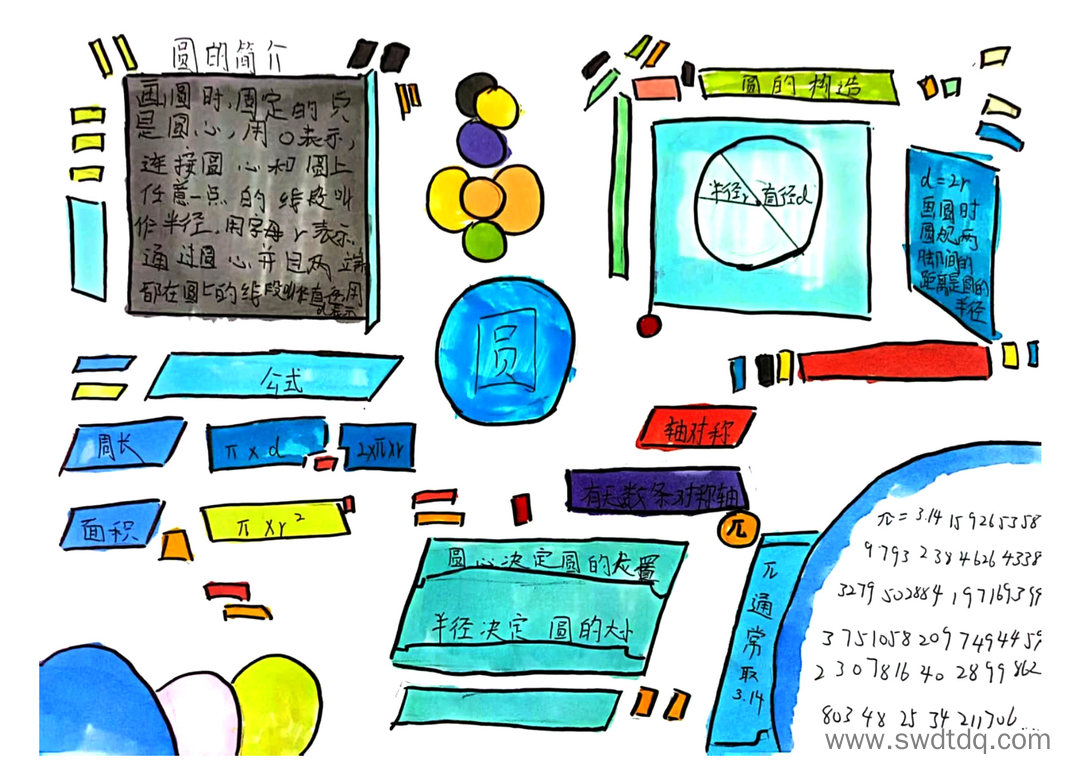 圆的简介
画圆时,固定的点
是圆心,用O表示,
连接圆心和圆上
任意一点的线段叫
作半径,用字母r表示.
通过圆心并且两端
都在圆上的线段叫作直径用
d表示
圆的构造
半径r 直径d
d=2r
画圆时
圆规两
脚间的
距离是圆的
半径
圆
公式
周长
π×d
2×π×r
面积
π×r²
轴对称
有无数条对称轴
圆心决定圆的位置
半径决定 圆的大小
π
π通常取3.14
π=3.14 15 9265358
9793 2384626 4338
3279 502884 197169399
3751058 209 7494459
2307816 40 2899 862
803 48 25 34 211706...
www.swdtdq.com